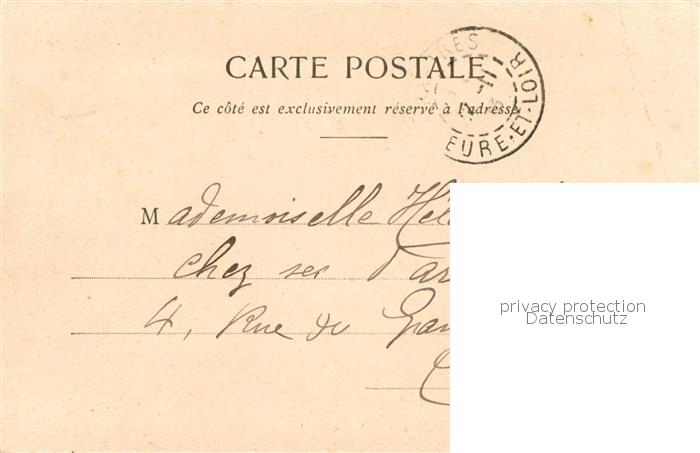 CARTE POSTALE
Ce côté est exclusivement réservé à l'adresse
EURE-ET-LOIR
Mademoiselle
chez ses
4, Rue du
privacy protection
Datenschutz